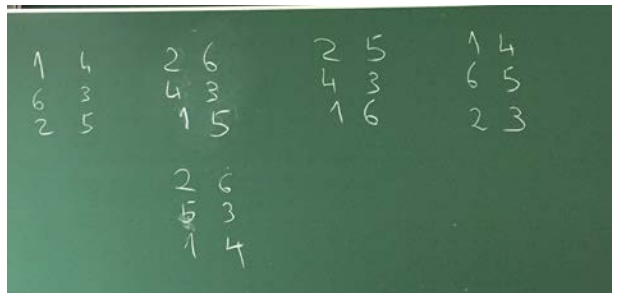 1 4
6 3
2 5
2 6
4 3
1 5
2 5
4 3
1 6
1 4
6 5
2 3
2 6
5 3
1 4